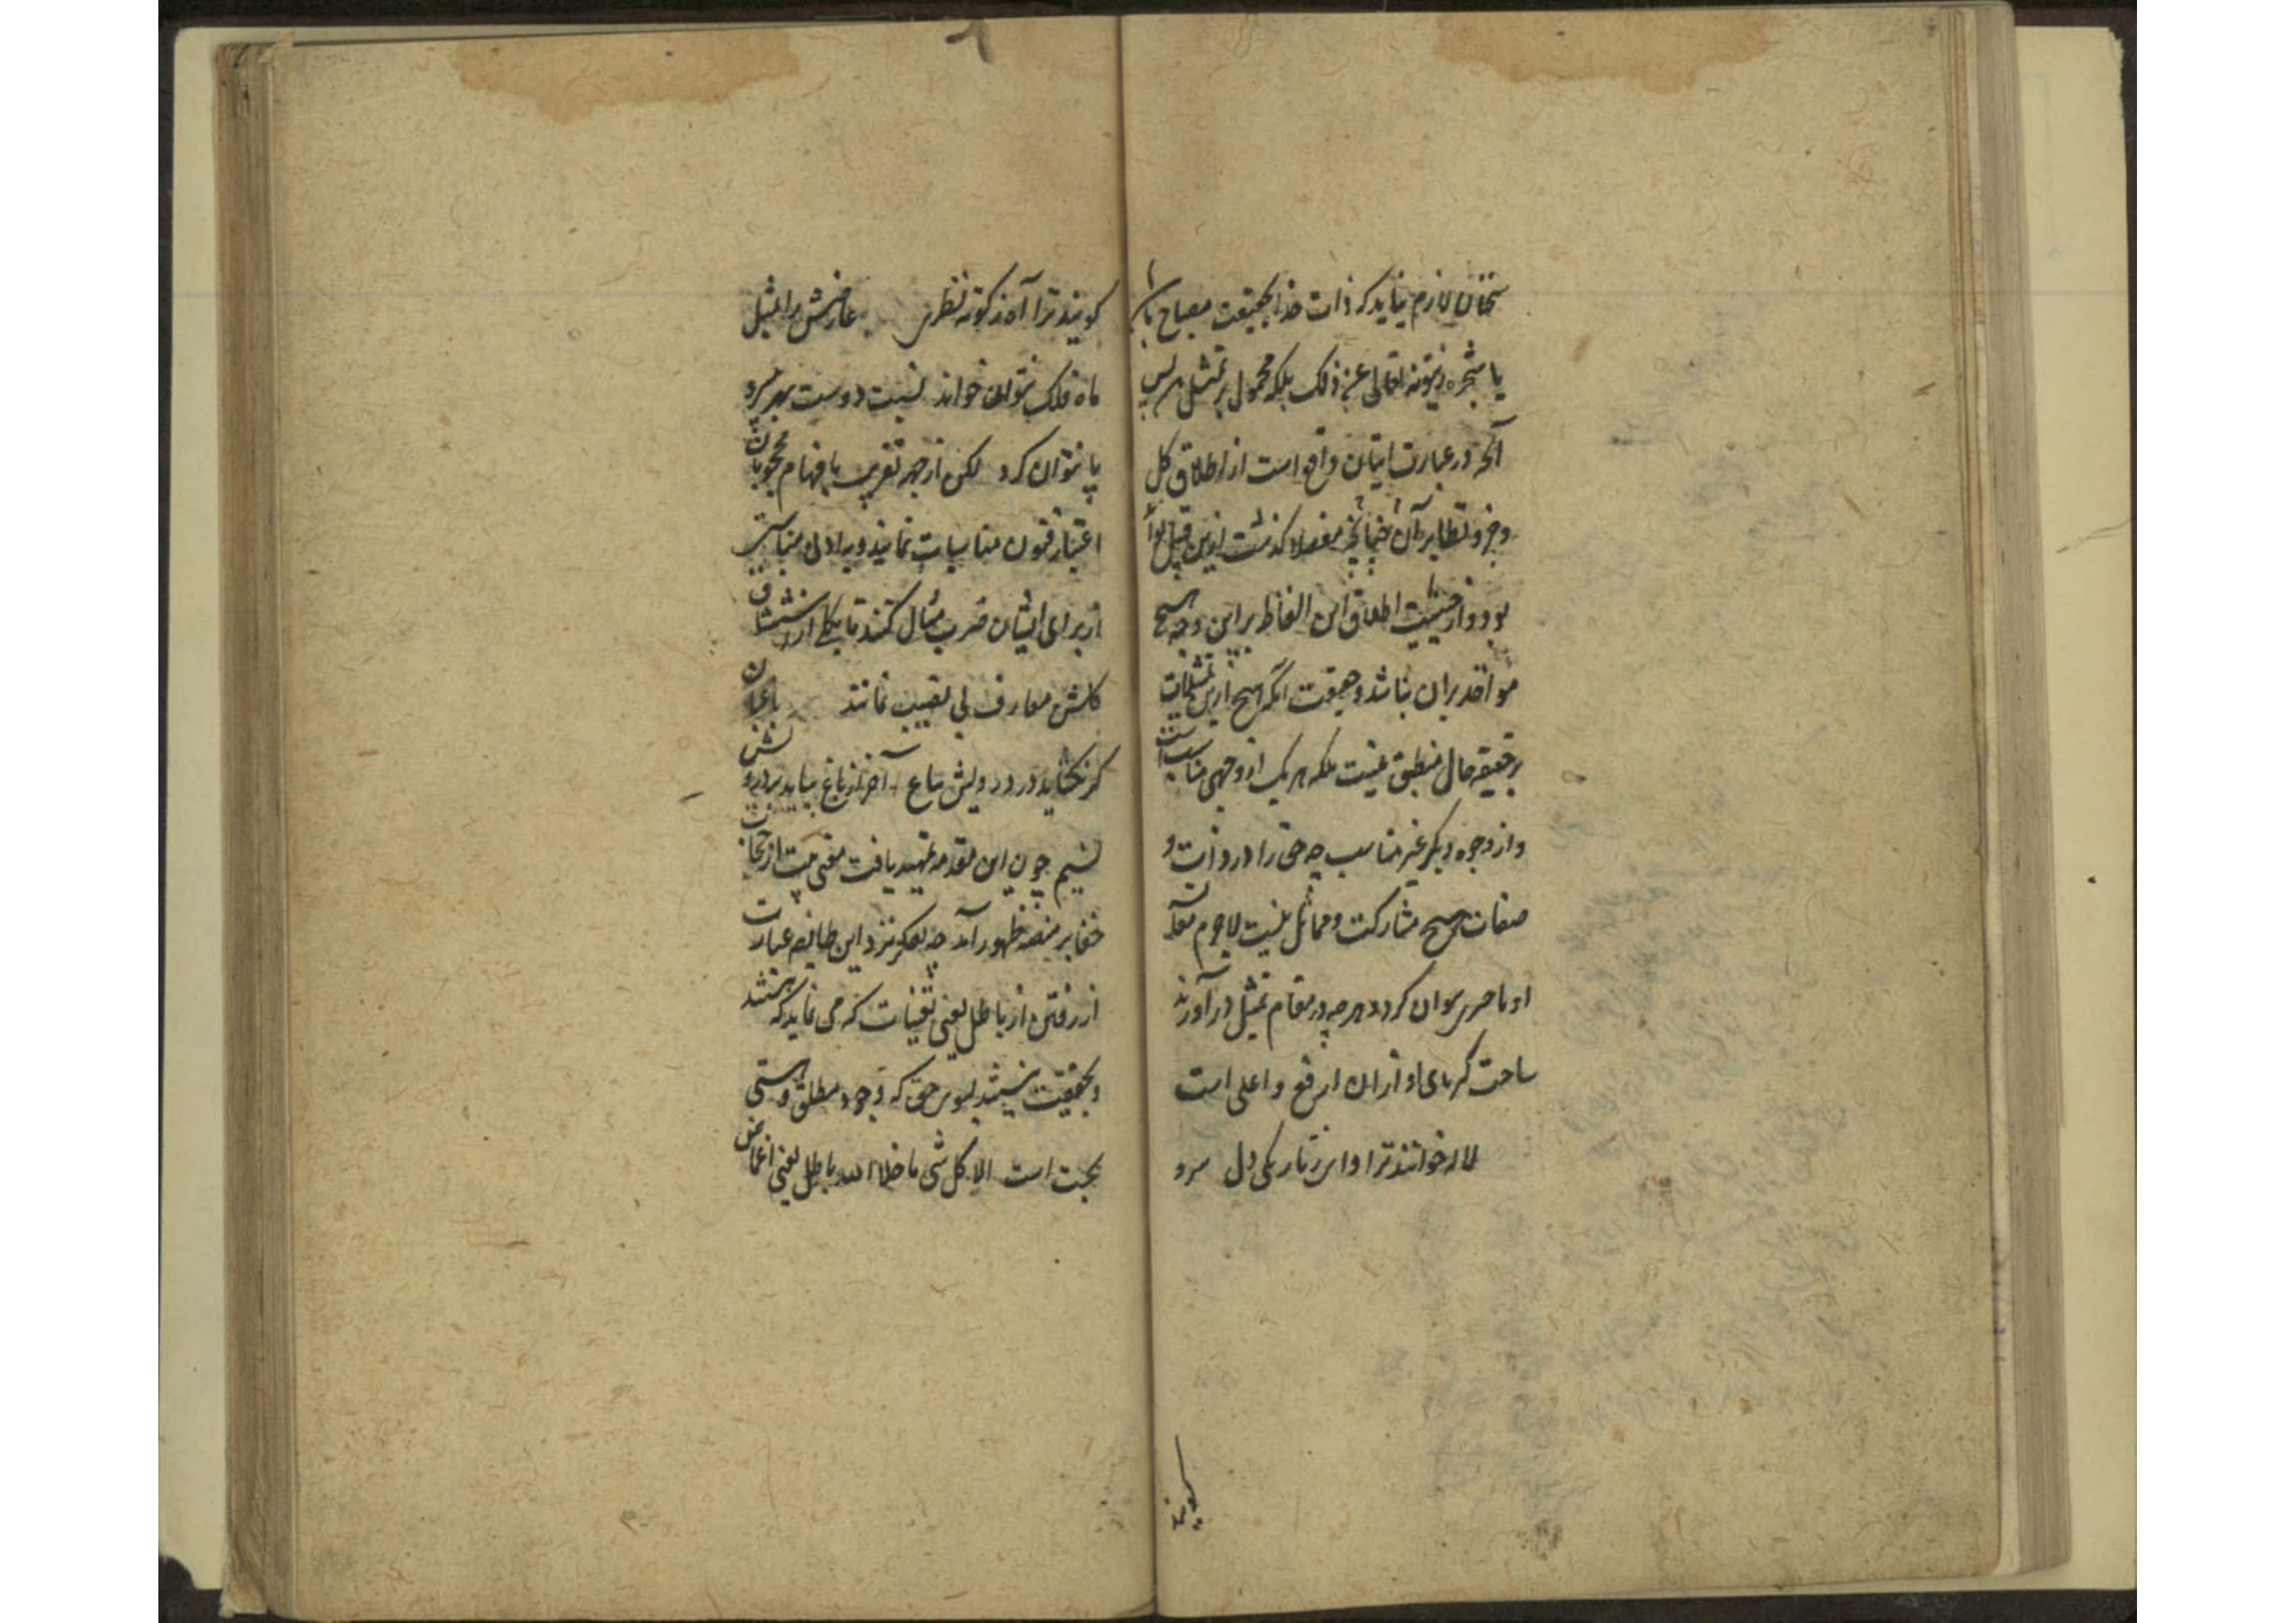 سخنان لازم نیاید که ذات خدا بحقیقت مصباح باشد
یا شجره زیتونه تعالی عن ذلک بلکه محمول بر تمثیل است پس
آنچه در عبارت ایشان واقع است از اطلاق کل
وجزو و نظایر آن چنانچه مفصلا گذشت ازین قبیل تواند
بود و از حیثیت اطلاق این الفاظ بر این وجه هیچ
مواخذه بر ایشان نباشد و حقیقت آنکه هیچ ازین تمثیلات
بر حقیقة حال منطبق نیست بلکه هر یک از وجهی مناسب است
و از وجوه دیگر غیر مناسب چه حق را در ذات و
صفات هیچ مشارکت و مماثل نیست لاجرم
او با چیزی نتوان کرد و هرچه در مقام تمثیل در آورند
ساحت کبریای او از ان ارفع و اعلی است
لاله خوانند ترا و این ز تاریکی دل سرو
گویند
گویند ترا آه ز کوته نظری عارضش را بمثل
ماه فلک نتوان خواند نسبت دوست بهر بی سرو
پا نتوان کرد لکن از جهة تقریب بافهام محجوبان
اعتبار فنون مناسبات نمایند و به ادنی مناسبتی
از برای ایشان ضرب مثال کنند تا بکلی از استنشاق
گلشن معارف بی نصیب نمانند باغبان
گر نگشاید در درویش بباغ آخر از باغ بیاید بر درویش
نسیم چون این مقدمه تمهید یافت معنی بیت از حجاب
خفا بر منصه ظهور آمد چه تفکر نزد این طایفه عبارت
از رفتن از باطل یعنی تعینات که می نماید که هستند
و بحقیقت نیستند بسوی حق که وجود مطلق و هستی
بحت است الا کل شی ما خلا الله باطل یعنی اغماض